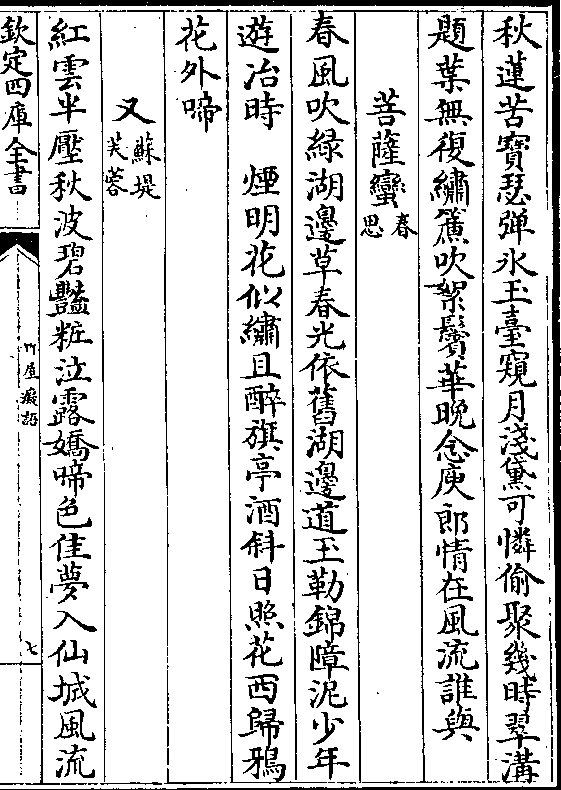 秋蓮苦寶瑟弹氷玉臺窺月淺黛可憐偷聚幾時翠溝
題葉無復繡簾吹絮鬢華晩念庾郎情在風流誰與
菩薩蠻春思
春風吹緑湖邊草春光依舊湖邊道玉勒錦障泥少年
遊冶時　煙明花似繡且醉旗亭酒斜日照花西歸鴉
花外啼
又蘇堤芙蓉
紅雲半壓秋波碧豔粧泣露嬌啼色佳夢入仙城風流
欽定四庫全書
竹屋癡語
七